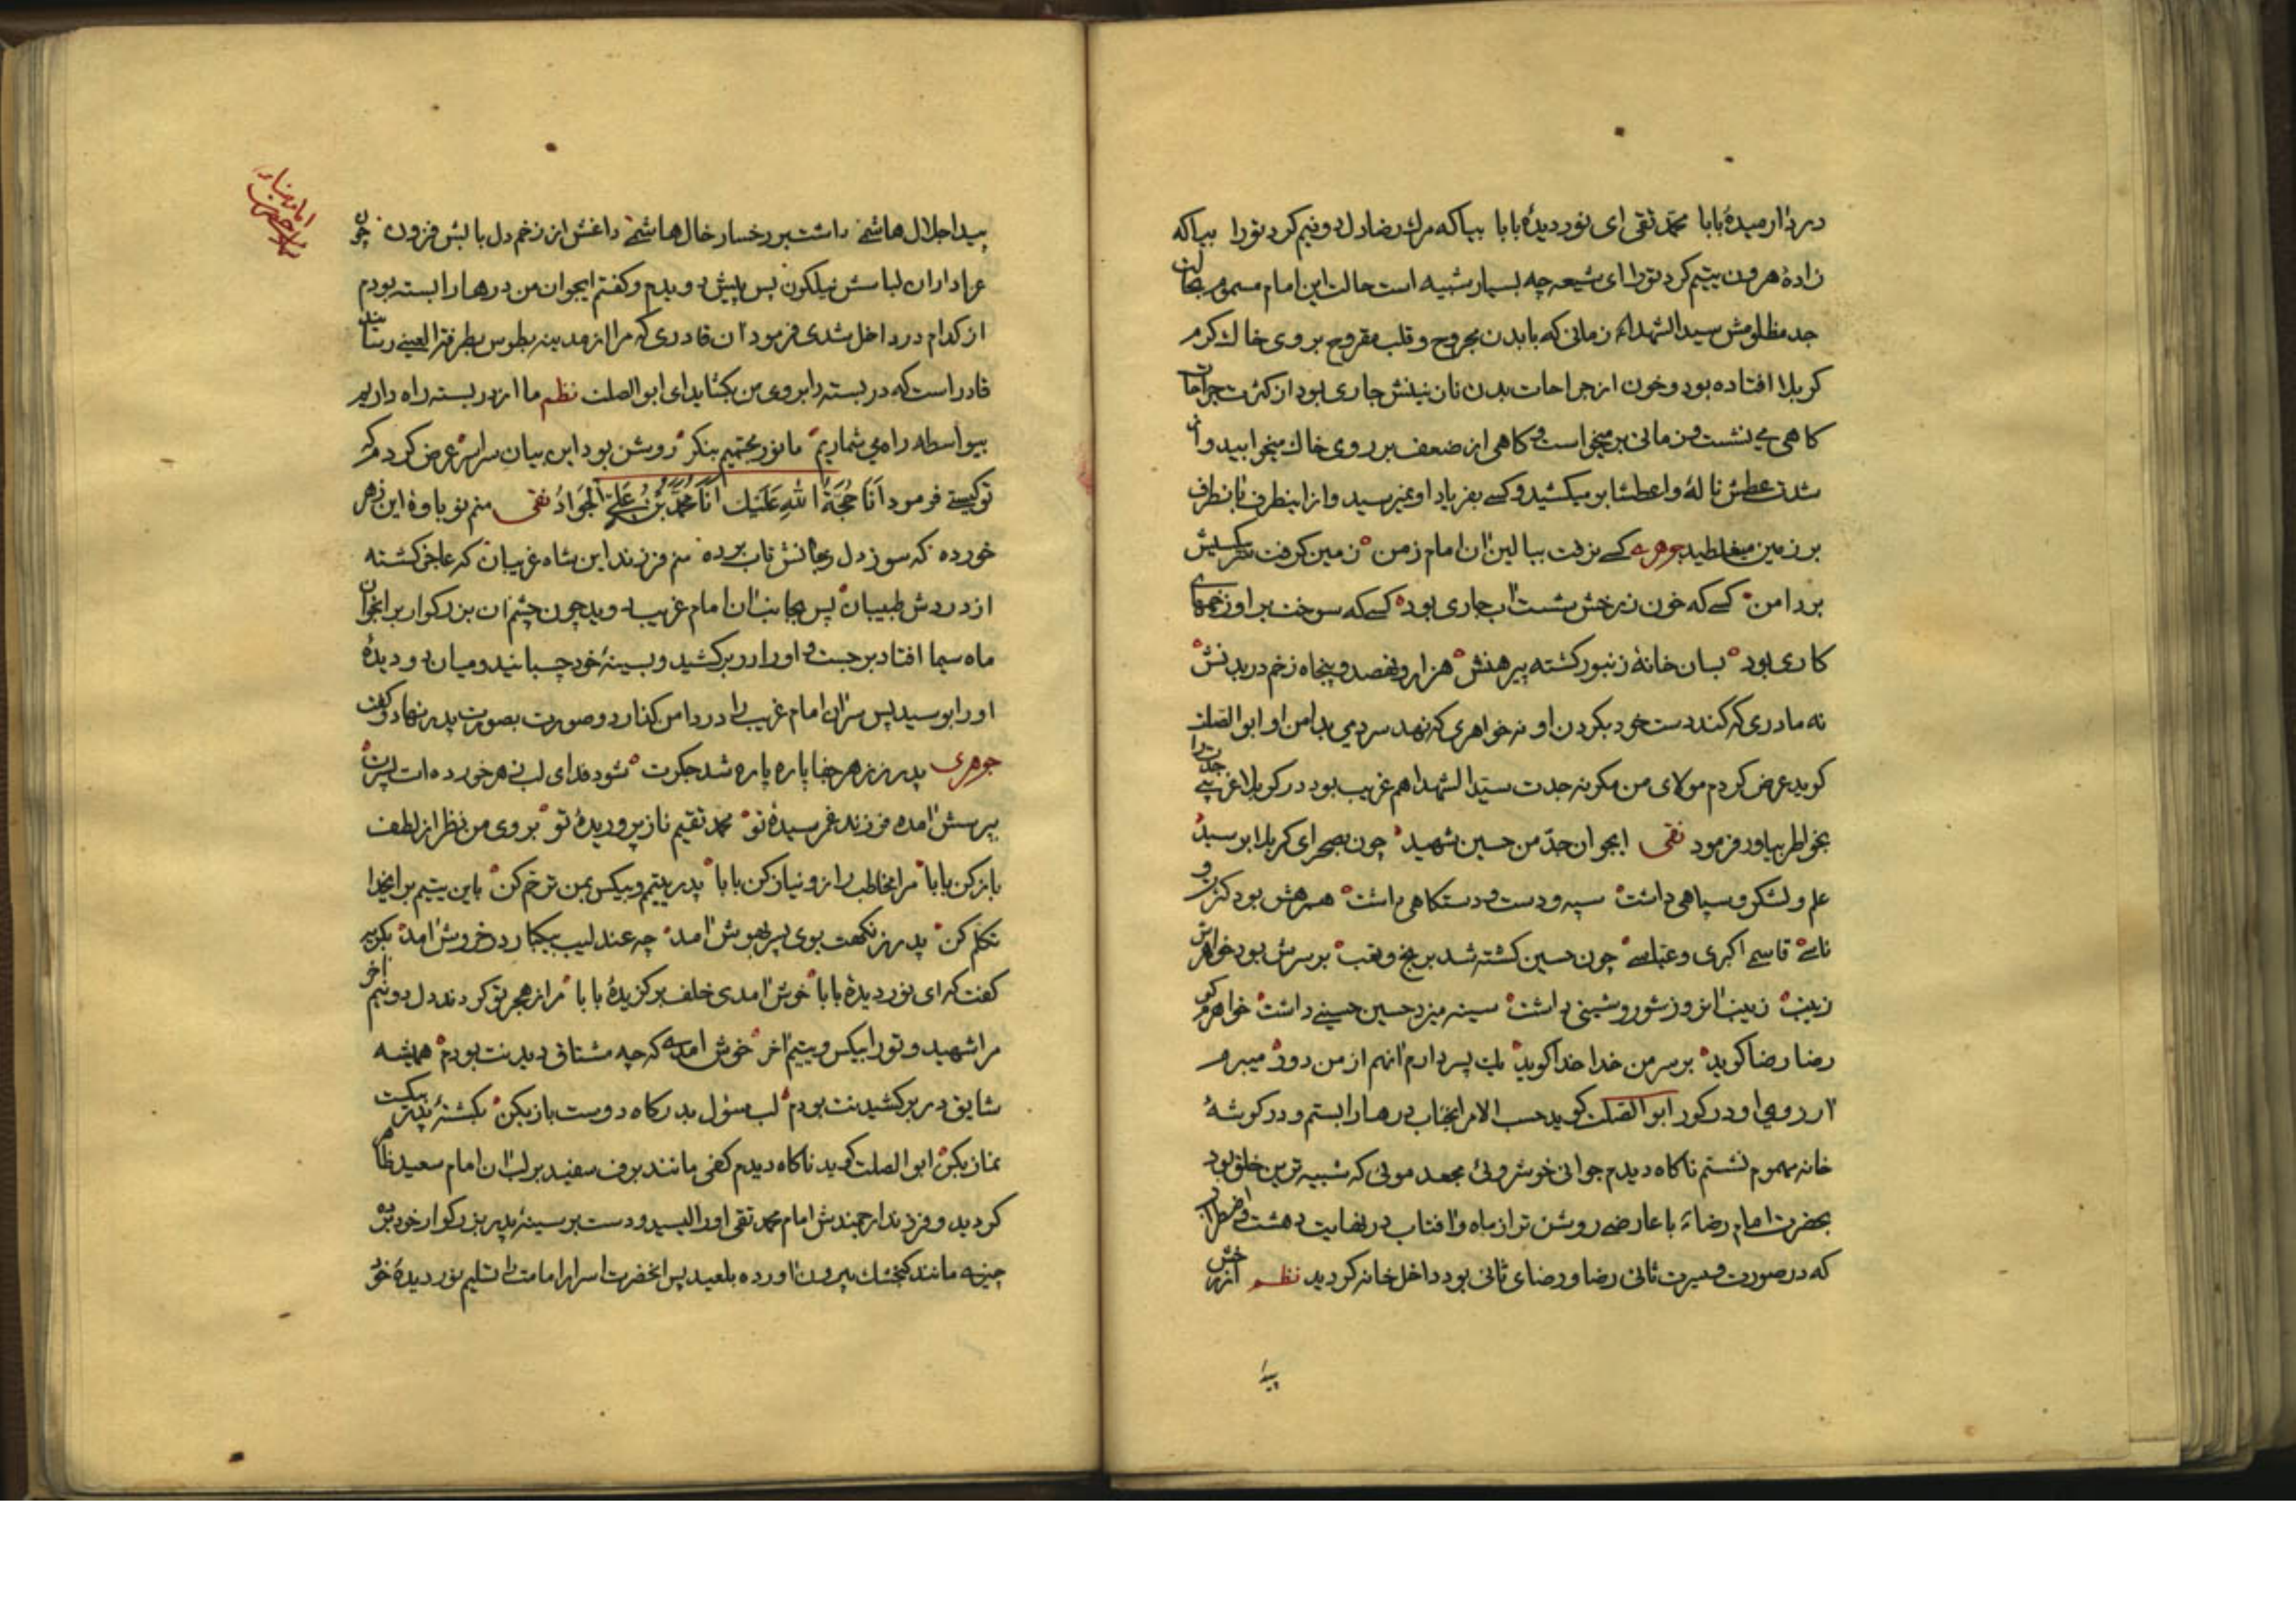 در دار میدهٔ بابا محمّد تقی ای نور دیدهٔ بابا بیا که مرك رضا دل دو نیم کرد تورا بیا که
زادهٔ هرون یتیم کرد تورا ای شیعه چه بسیار شبیه است حالت این امام مسموم بحالت
جد مظلومش سید الشهداء زمانی که با بدن مجروح و قلب مقروح بر روی خاك کرم
کربلا افتاده بود و خون از جراحات بدن نازنینش جاری بود از کثرت جراحات
کاهی می نشست و زمانی بر میخواست و کاهی از ضعف بر روی خاك میخوابید و از
شدت عطش نالهٔ واعطشا بر میکشید و کسی بفریاد او نمیرسید و از اینطرف بانطرف
بر زمین میغلطید جوهری کسی نرفت ببالین ان امام زمن زمین کرفت سر
بر دامن کسی که خون زبرخش شست اب جاری بود کسی که سوخت بر او زخمهای
کاری بود بسان خانهٔ زنبور کشته پیرهنش هزار و نهصد و پنجاه زخم در بدنش
نه مادری که کند دست خود بکردن او نه خواهری که نهد سر دمی بدامن او ابو الصلت
کوید عرض کردم مولای من مکر نه جدت سید الشهدا هم غریب بود در کربلا غریبی جدت را
بخواطر بیاور فرمود تقی ایجوان جدّ من حسین شهید چون بصحرای کربلا بر سید
علم و لشکر و سپاهی داشت سپه و دست و دستکاهی داشت همرهش بود کنز و
ناسی قاسم اکبری و عباسی چون حسین کشته شد برنج و تعب بر سرش بود خواهرش
زینب زینب انروز شور و شینی داشت سینه میزد حسین حسینی داشت خواهرم کو
رضا رضا کوید بر سر من خدا خدا کوید یك پسر دارم انهم از من دور میبرم
ارزوی او در کور ابو الصلت کوید حسب الامر انجناب درها را بستم و در کوشهٔ
خانه مهموم نشستم ناکاه دیدم جوانی خوش روئی مجعد موئی که شبیه ترین خلق بود
بحضرت امام رضاء با عارضی روشن تر از ماه و افتاب در نهایت دهشت و اضطراب
که در صورت و سیرت ثانی رضا و رضای ثانی بود داخل خانه کردید نظم از رخش
پیدا
پیدا جلال هاشمی داشت بر رخسار خال هاشمی داغش از زخم دل بابش فزون چون
عزاداران لباسش نیلکون پس پیش دویدم و کفتم ایجوان من درها را بسته بودم
از کدام در داخل شدی فرمود ان قادری که مرا از مدینه بطوس بطرفة العینی رساند
قادر است که در بسته را بروی من بکشاید ای ابو الصلت نظم ما از در بسته راه داریم
بیواسطه راه می شماریم ما نور مجتمیم بنکر روشن بود این بیان سراسر عرض کردم که
تو کیستی فرمود اَنَا حُجَّةُ اللهِ عَلَیْكَ اَنَا مُحَمَّدُ بْنُ عَلِیٍّ الْجَوَادُ تقی منم نوباوهٔ این زهر
خورده که سوز دل ز جانش تاب برده منم فرزند این شاه غریبان که عاجز کشته
از دردش طبیبان پس بجانب ان امام غریب دوید چون چشم ان بزرکوار بر انجوان
ماه سیما افتاد بر جست و او را در بر کشید و بسینهٔ خود چسبانید و میان دو دیدهٔ
او را بوسید پس سر ان امام غریب را در دامن کذارد و صورت بصورت پدر نهاد و کفت
جوهری پدر ز زهر جفا پاره پاره شد جکرت شود فدای لب زهر خورده ات پسرت
بپرسش امده فرزند غم رسیدهٔ تو محمد تقیم ناز پروریدهٔ تو بروی من نظر از لطف
باز کن بابا مرا مخاطب راز و نیاز کن بابا پدر یتیم و بیکس بمن ترحم کن باین یتیم برایخدا
تکلم کن پدر ز نکهت بوی پسر بهوش امد چه عندلیب بیکبار در خروش امد بکریه
کفت که ای نور دیدهٔ بابا خوش امدی خلف برکزیدهٔ بابا مرا ز هجر تو کردند دل دو نیم اخر
مرا شهید و تورا بیکس و یتیم اخر خوش امدی که چه مشتاق دیدنت بودم همیشه
شایق در بر کشیدنت بودم لب سؤل بدرکاه دوست باز بکن بکشتهٔ پدر بیکست
نماز بکن ابو الصلت کوید ناکاه دیدم کفی مانند برف سفید بر لب ان امام سعید ظاهر
کردید و فرزند ارجمندش امام محمد تقی او را لیسید و دست بر سینهٔ پدر بزرکوار خود برده
چیزی مانند کنجشك بیرون اورده بلعید پس انحضرت اسرار امامت را تسلیم نور دیدهٔ خود